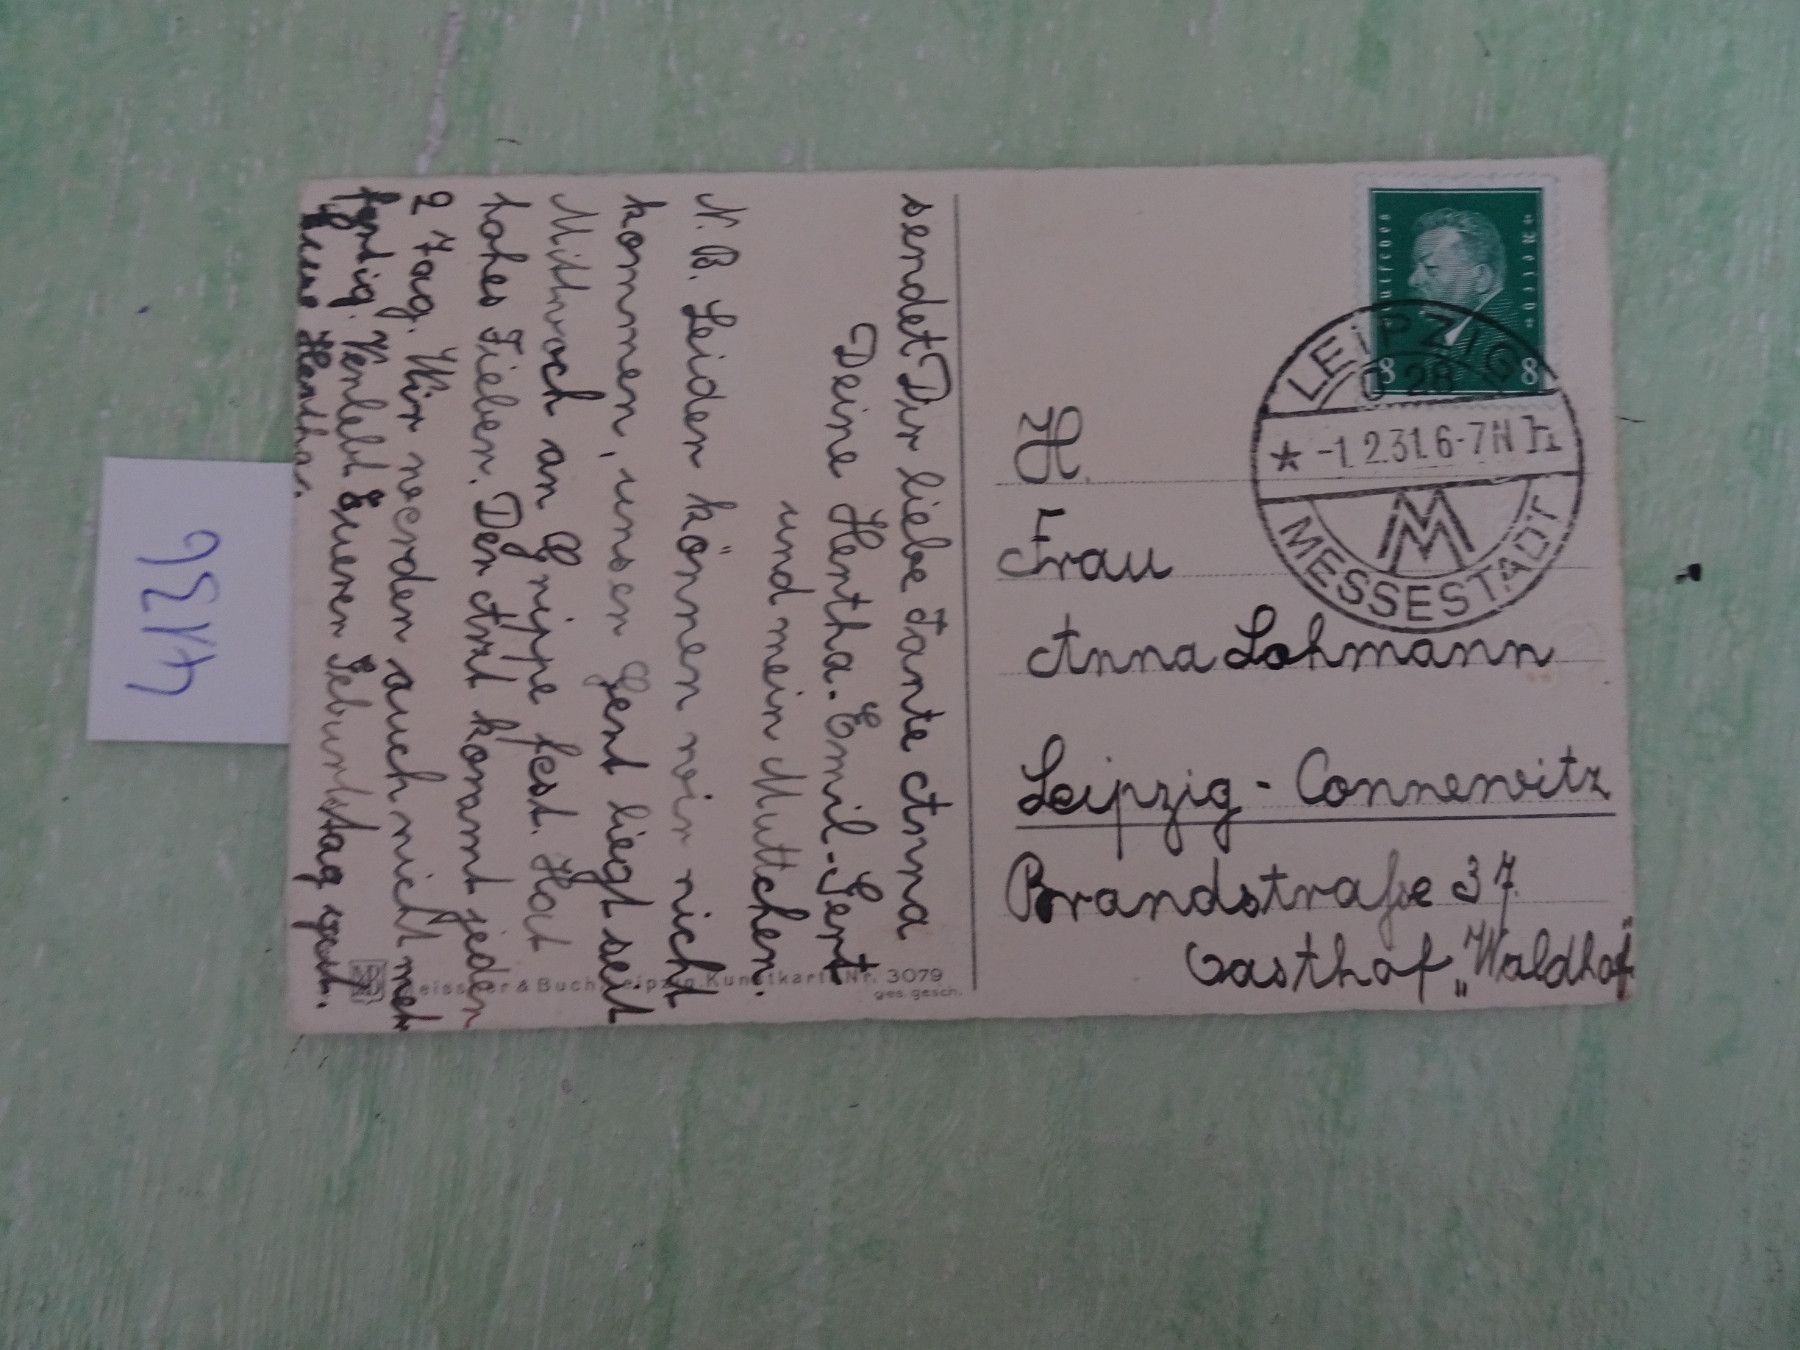 sendet Dir liebe Tante Anna
Deine Hertha. Emil-Gert
und mein Muttchen.
N. B. Leider können wir nicht
kommen, unser Gert liegt seit
Mittwoch an Grippe fest. Hat
hohes Fieber. Der Arzt kommt jeden
2 Tag. Wir werden auch nicht mehr
fertig. Verlebt Euren Geburtstag
Hertha.
Meissner & Buch, Leipzig. Kunstkarte Nr. 3079
ges. gesch.
Deutsches Reich
8 8
LEIPZIG
C 2B
* -1.2.31.6-7N
MESSESTADT
H.
Frau
Anna Lohmann
Leipzig - Connewitz
Brandstraße 37.
Gasthof „Waldhof"
44136